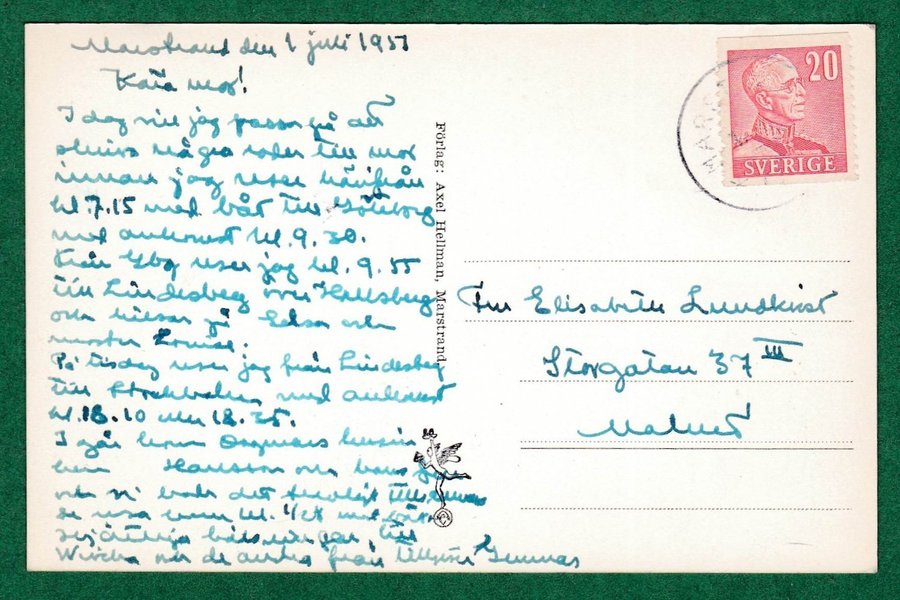 Marstrand den 1 juli 1951
Kära mor!
I dag vill jag passa på att
skriva några rader till mor
innan jag reser härifrån
kl. 7.15 med båt till Göteborg
med ankomst kl. 9.30.
Från Gbg reser jag kl. 9.55
till Lindesberg över Hallsberg
och hälsar på Elsa och
moster Louise.
På tisdag reser jag från Lindesberg
till Stockholm med ankomst
kl. 18.10 eller 18.35.
I går kom kusin
Hansson och hans fru
och vi hade det trevligt tillsammans
de resa kl.
till
när de från Gunnar
Förlag: Axel Hellman, Marstrand
20
SVERIGE
Fru Elisabeth Lundkvist
Storgatan 37 III
Malmö